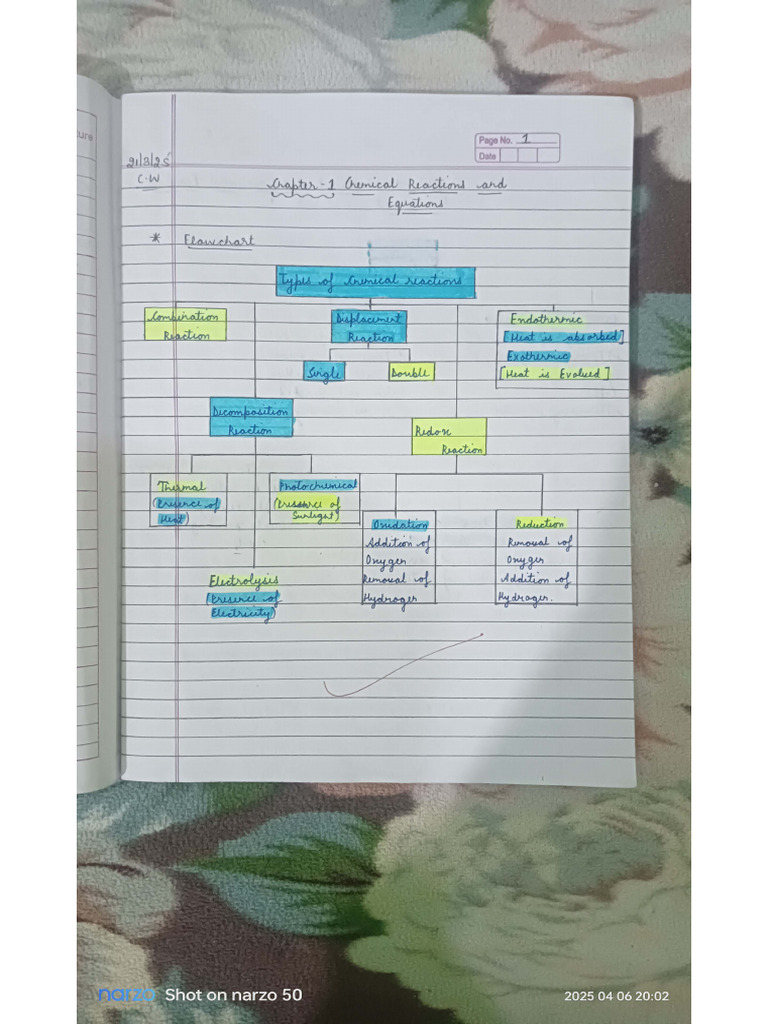 ure
Page No. 1
Date
21/3/25
C.W
Chapter-1 Chemical Reactions and
Equations
* Flowchart
Types of Chemical reactions
Combination
Reaction
Displacement
Reaction
Single
Double
Endothermic
[Heat is absorbed]
Exothermic
[Heat is Evolved]
Decomposition
Reaction
Redox
Reaction
Thermal
(Presence of
Heat)
Photochemical
(Presence of
Sunlight)
Electrolysis
(Presence of
Electricity)
Oxidation
Addition of
Oxygen
Removal of
Hydrogen
Reduction
Removal of
Oxygen
Addition of
Hydrogen.
narzo Shot on narzo 50
2025 04 06 20:02